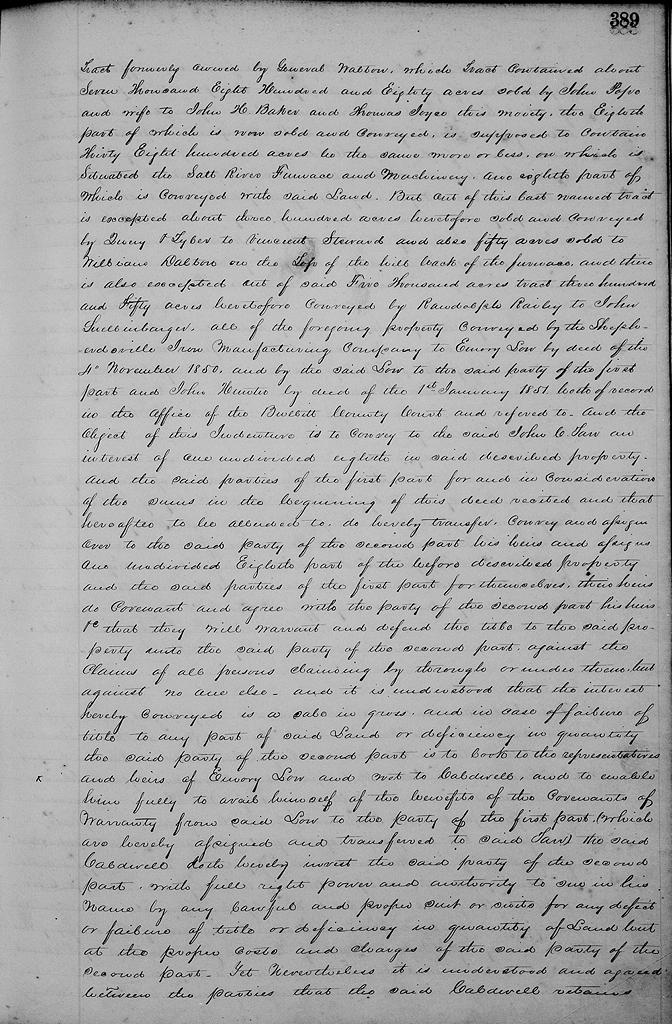 389
Tract formerly owned by General Walton, which Tract Contained about
Seven Thousand Eight Hundred and Eighty acres sold by John Pope
and wife to John H. Baker and Thomas Joyce this moiety, the Eighth
part of which is now sold and Conveyed, is supposed to Contain
Thirty Eight hundred acres be the same more or less, on which is
Situated the Salt River Furnace and Machinery. one eighth part of
Which is Conveyed with said Land. But out of this last named tract
is excepted about three hundred acres heretofore sold and Conveyed
by Tyler to Vincent Steward and also fifty acres sold to
William Dalton on the Top of the hill back of the furnace, and there
is also excepted out of said Five Thousand acres tract three hundred
and Fifty acres heretofore Conveyed by Randolph Railey to John
Snellenbarger, all of the foregoing property Conveyed by the Sheph-
erdsville Iron Manufacturing Company to Emory Low by deed of the
November 1850, and by the said Low to the said party of the first
part and John Hunter by deed of the 1st January 1851. both of record
in the Office of the Bullitt County Court and refered to. And the
Object of this Indenture is to Convey to the said John C. an
interest of one undivided eighth in said described property.
And the said parties of the first part for and in Consideration
of the sums in the beginning of this deed recited and that
hereafter to be alluded to, do hereby transfer, Convey and assign
over to the said party of the second part his heirs and assigns
One undivided Eighth part of the before described property
and the said parties of the first part for themselves, their heirs
do Covenant and agree with the party of the second part his heirs
&c that they will warrant and defend the title to the said pro-
perty unto the said party of the second part against the
Claims of all persons claiming by through or under them, but
against no one else - and it is understood that the interest
hereby Conveyed is a sale in gross. and in case of failure of
title to any part of said Land or deficiency in quantity
the said party of the second part is to look to the representatives
and heirs of Emory Low and not to Caldwell, and to enable
him fully to avail himself of the benefits of the Covenants of
Warranty from said Low to the party of the first part, (which
are hereby assigned and transferred to said ) the said
Caldwell doth hereby invest the said party of the second
part, with full right power and authority to sue in his
Name by any lawful and proper suit or suits for any defect
or failure of title or deficiency in quantity of Land but
at the proper costs and charges of the said party of the
second part. Yet Nevertheless it is understood and agreed
between the parties that the said Caldwell retains